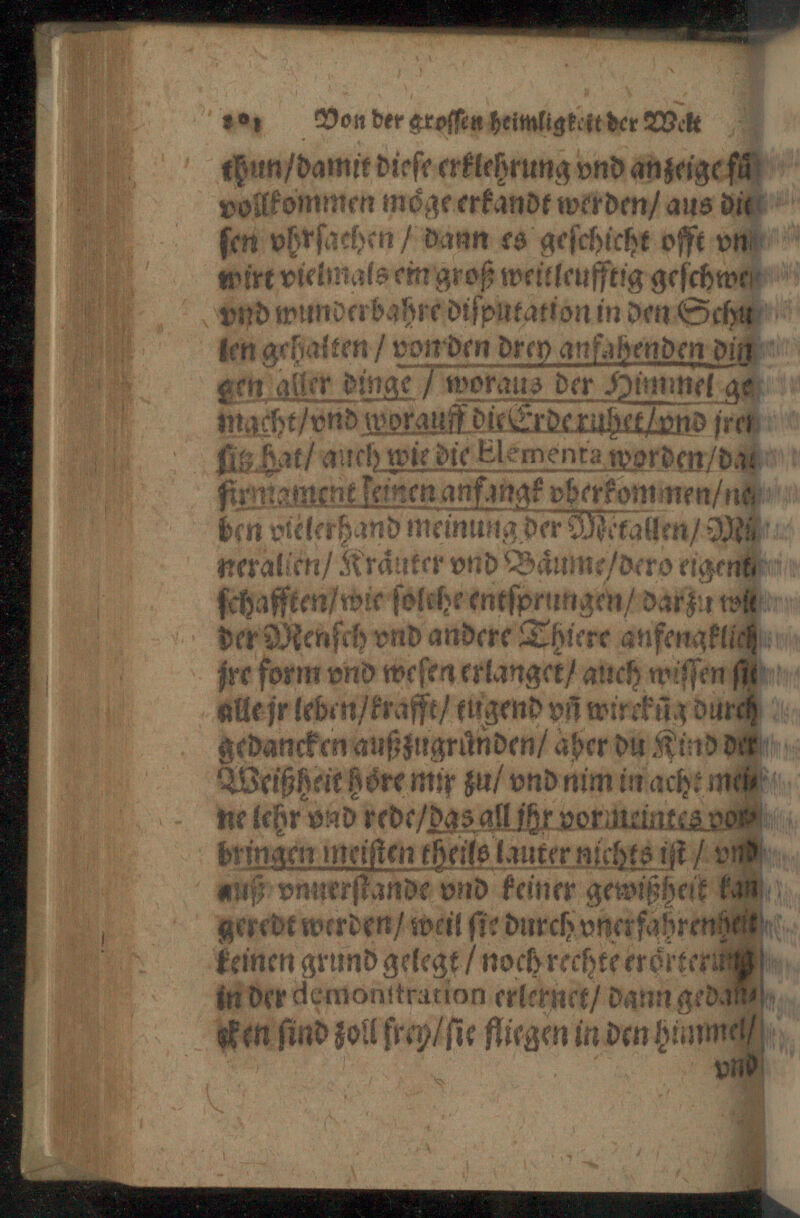 Von der grossen heimligkeit der Welt
thun/damit diese erklehrung vnd anzeige
vollkommen möge erkandt werden/ aus
sen vhrsachen / dann es geschicht offt
wirt vielmals ein groß weitleufftig
vnd wunderbahre disputation in den
len gehalten / von den drey anfahenden
gen aller dinge / woraus der Himmel
macht/vnd worauff die Erde ruhet/vnd
sitz hat/ auch wie die Elementa worden/
firmament seinen anfangk vberkommen/
ben vielerhand meinung der Metallen/
neralien/ Kräuter vnd Bäume/dero
schafften/wie solche entsprungen/ darzu
der Mensch vnd andere Thiere anfengklich
jre form vnd wesen erlanget/ auch wissen
alle jr leben/krafft/ tugend vñ wirckũg durch
gedancken außzugründen/ aber du Kind der
Weißheit höre mir zu/ vnd nim in acht mei-
ne lehr vnd rede/das all jhr vormeintes vor-
bringen meisten theils lauter nichts ist / vnd
auß vnuerstande vnd keiner gewißheit kan
geredt werden/ weil sie durch vnerfahrenheit
keinen grund gelegt / noch rechte erörterung
in der demonstration erlernet/ dann gedan-
cken sind zoll frey/sie fliegen in den himmel/
vnd